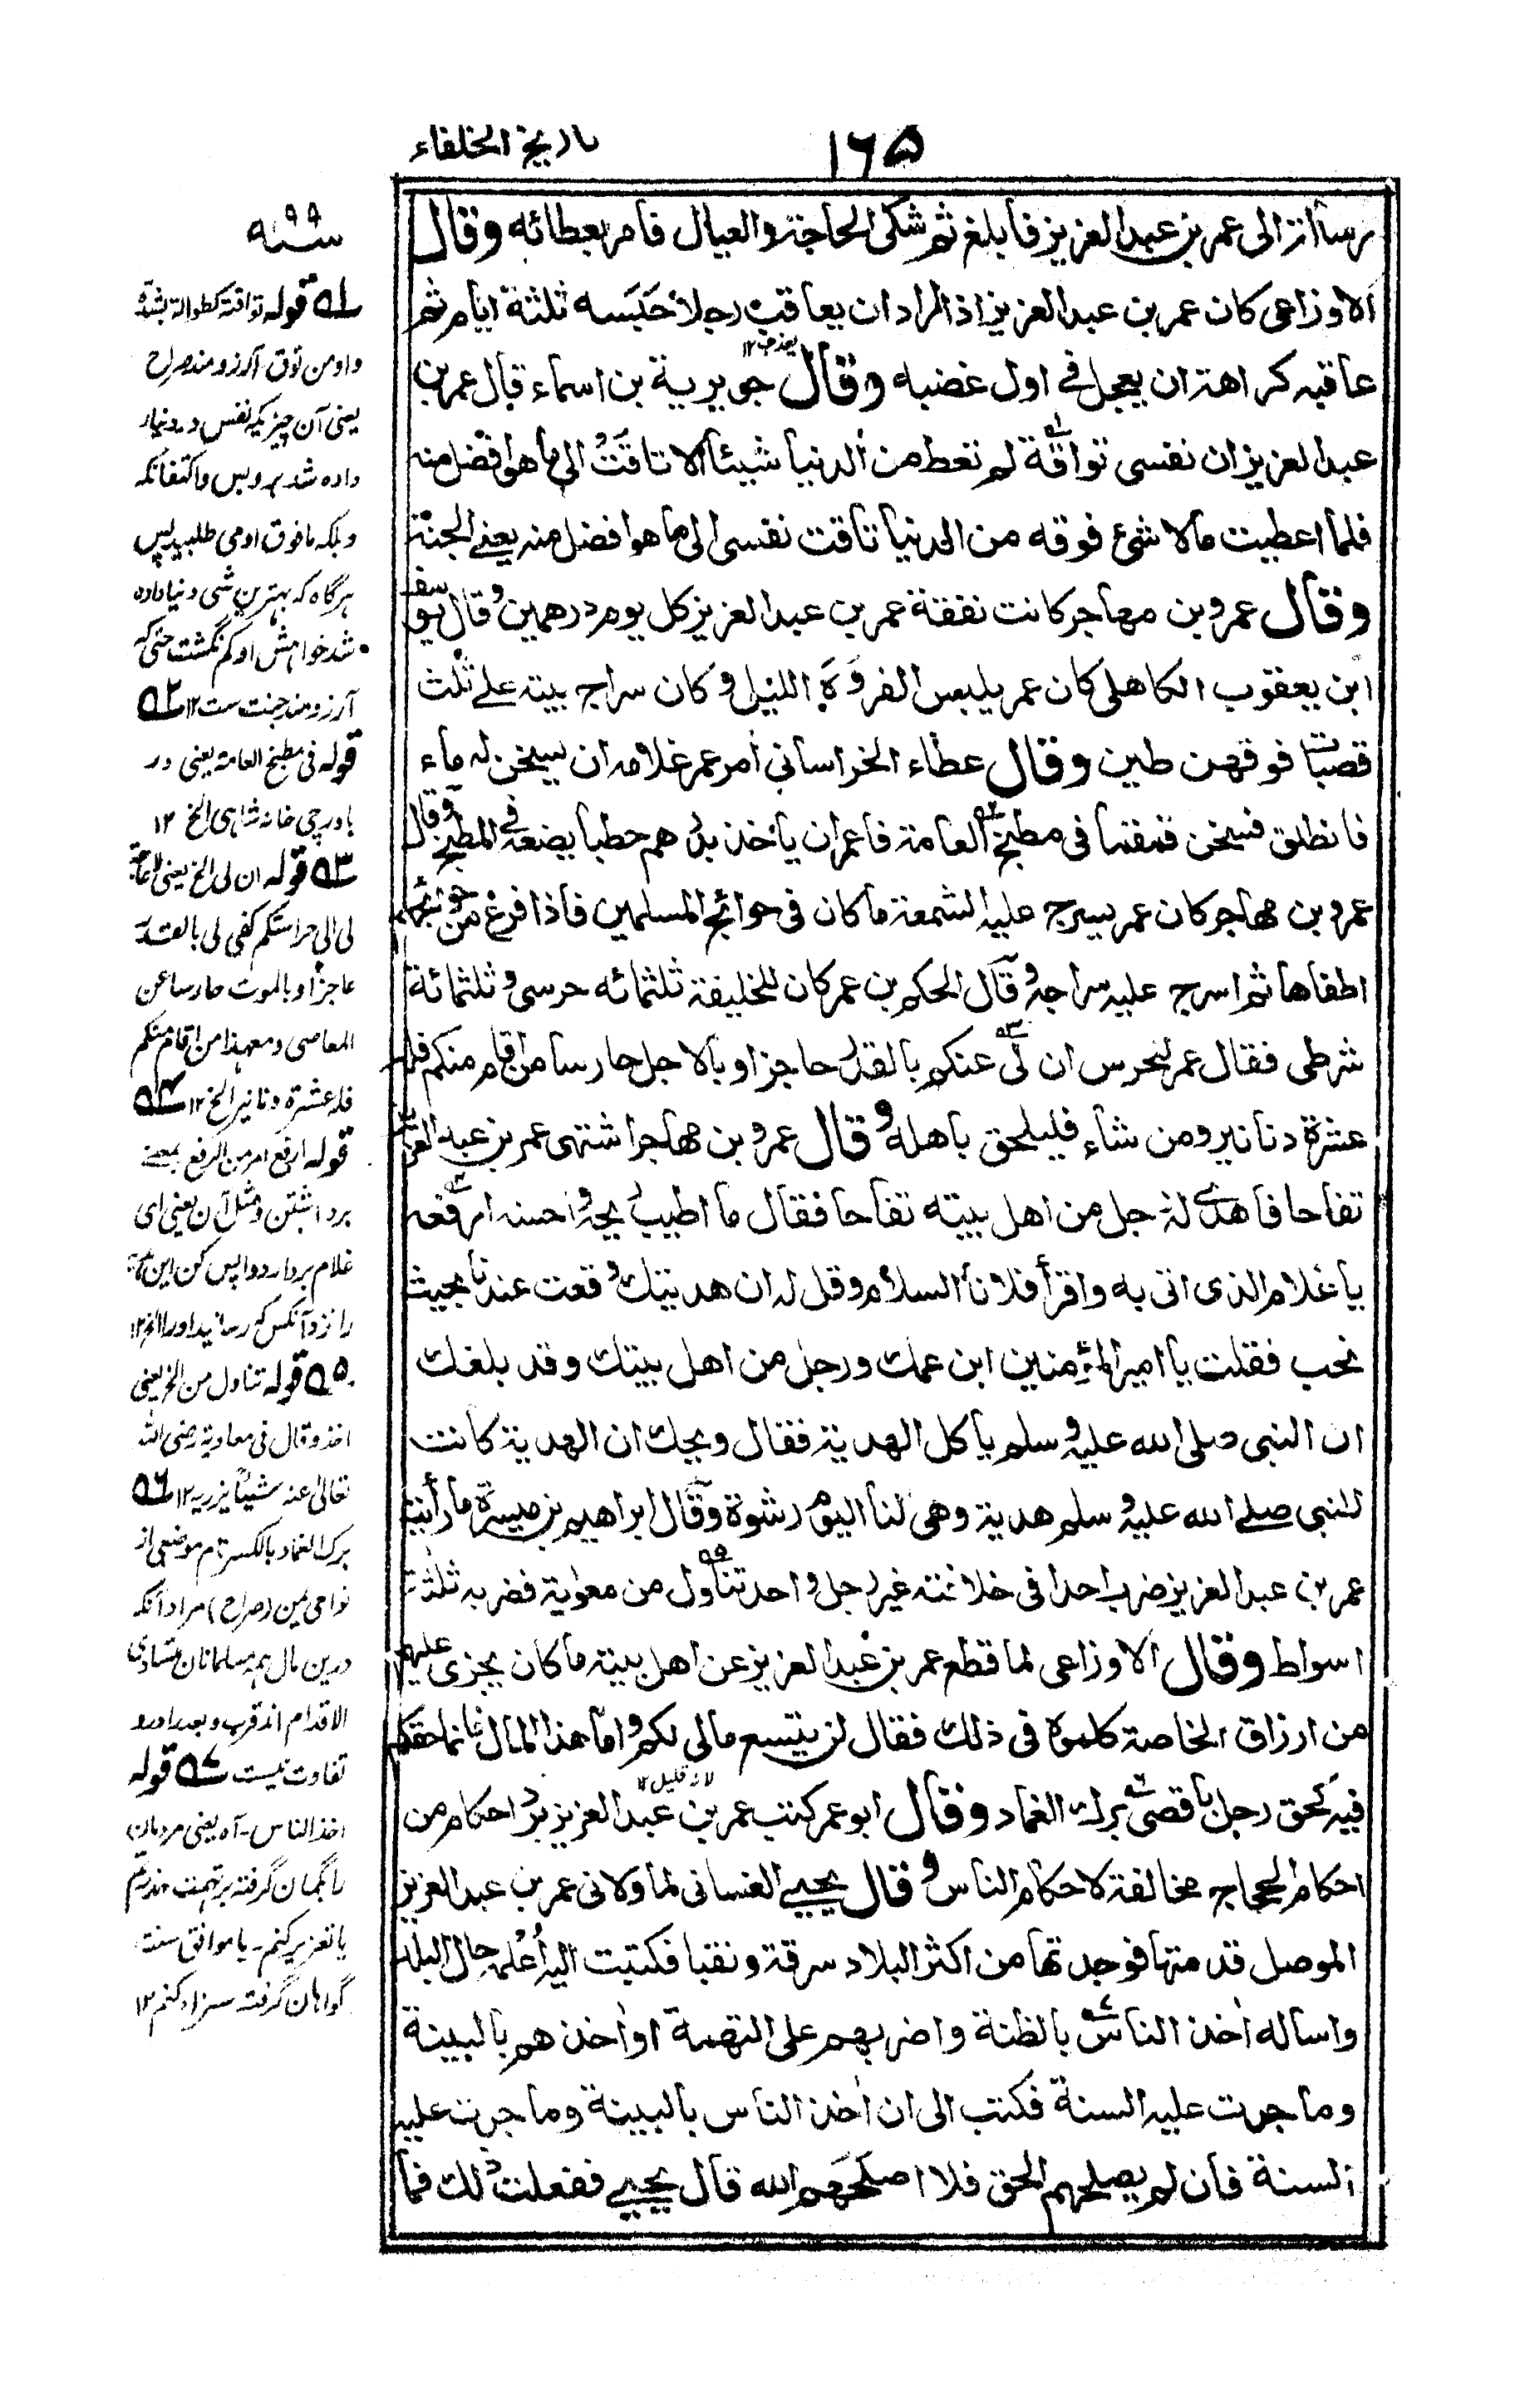 ١٦٥
تاريخ الخلفاء
رسالته الى عمر بن عبد العزيز فابلغ ثم شكى الحاجة والعيال فامر بعطائه وقال
الاوزاعى كان عمر بن عبد العزيز اذا اراد ان يعاقب رجلا حَبَسه ثلثة ايام ثم
عاقبه كراهة ان يعجل فے اول غضبه وقال جويرية بن اسماء قال عمر بن
عبد العزيز ان نفسى تواقة لم تعط من الدنيا شيئا الا تاقَتْ الى ما هو افضل منه
فلما اعطيت ما لا شئ فوقه من الدنيا تاقت نفسى الى ما هو افضل منه يعنے الجنة
وقال عمرو بن مهاجر كانت نفقة عمر بن عبد العزيز كل يوم درهمين وقال يوسف
ابن يعقوب الكاهلى كان عمر يلبس الفروة الليل وكان سراج بيته علے ثلث
قصبات فوقهن طين وقال عطاء الخراسانى امر عمر غلامه ان يسخن له ماء
فانطلق فسخن قمقما فى مطبخ العامة فامر ان ياخذ بدرهم حطبا يضعه فے المطبخ وقال
عمرو بن مهاجر كان عمر يسرج عليه الشمعة ما كان فى حوائج المسلمين فاذا فرغ من حوائجهم
اطفاها ثم اسرج عليه سراجه وقال الحكم بن عمر كان للخليفة ثلثمائه حرسى وثلثمائة
شرطى فقال عمر للحرس ان لى عنكم بالقدر حاجزا وبالاجل حارسا من اقام منكم فله
عشرة دنانير ومن شاء فليلحق باهله وقال عمرو بن مهاجر اشتهى عمر بن عبد العزيز
تفاحا فاهدے له رجل من اهل بيته تفاحا فقال ما اطيب ريحه واحسنه ارفعه
يا غلام للذى اتى به واقرأ فلانا السلام وقل له ان هديتك وقعت عندنا بحيث
نحب فقلت يا امير المؤمنين ابن عمك ورجل من اهل بيتك وقد بلغك
ان النبى صلى الله عليه وسلم ياكل الهدية فقال ويحك ان الهدية كانت
للنبى صلے الله عليه وسلم هدية وهى لنا اليوم رشوة وقال ابراهيم بن ميسرة ما رأيت
عمر بن عبد العزيز ضرب احدا فى خلافته غير رجل واحد تناول من معوية فضربه ثلثة
اسواط وقال الاوزاعى لما قطع عمر بن عبد العزيز عن اهل بيته ما كان يجزى عليهم
من ارزاق الخاصة كلموه فى ذلك فقال لن يتسع مالى لكم واما هذا المال فانما حقكم
فيه كحق رجل باقصى برك الغماد وقال ابو عمر كتب عمر بن عبد العزيز برد احكام من
احكام الحجاج مخالفة لاحكام الناس وقال يحيے الغسانى لما ولانى عمر بن عبد العزيز
الموصل قدمتها فوجدتها من اكثر البلاد سرقة ونقبا فكتبت اليه أعلمه حال البلد
واساله اخذ الناس بالظنة واضربهم على التهمة او اخذهم بالبينة
وما جرت عليه السنة فكتب الى ان اخذ الناس بالبينة وما جرت عليه
السنة فان لم يصلحهم الحق فلا اصلحهم الله قال يحيے ففعلت ذلك فما
سنه ٩٩
له قوله تواقة كطوالة بشدة
واو من توق آرزومند صراح
يعنى آن چيزيكه نفس در دنيا
داده شد بر و بس و اكتفا نكرد
و بلكه مافوق او مى طلبيد پس
هرگاه كه بهترين شى دنيا داده
شد خواهش او كم نگشت حتى كه
آرزومند جنت ست ١٢ ٥٢
قوله فى مطبخ العامة يعنى در
باورچى خانه شاهى الخ ١٢
٥٣ قوله ان لى الخ يعنى لا حاجة
لى الى حراستكم كفى لى بالقدر
حاجزا و بالموت حارسا عن
المعاصى و معهذا من اقام منكم
فله عشرة دنانير الخ ١٢ ٥٤
قوله ارفع امر من الرفع بمعنے
برداشتن و مثل آن يعنى اى
غلام بردار و واپس كن اين
را نزد آنكس كه رسانيد اورا الخ ١٢
٥٥ قوله تناول من الخ يعنى
اخذ وقال فى معاوية رضى الله
تعالى عنه شيئا يزريه ١٢ ٥٦
برك الغماد بالكسر نام موضعى از
نواحى يمن (صراح) مراد آنكه
درين مال همه مسلمانان متساوى
الاقدام اند قرب و بعد را درو
تفاوت نيست ٥٧ قوله
اخذ الناس۔ آه يعنى مردمان
را بگمان گرفته بر تهمت بزنم
يا تعزير كنم۔ يا موافق سنت
گواهان گرفته سزا دهم ١٢